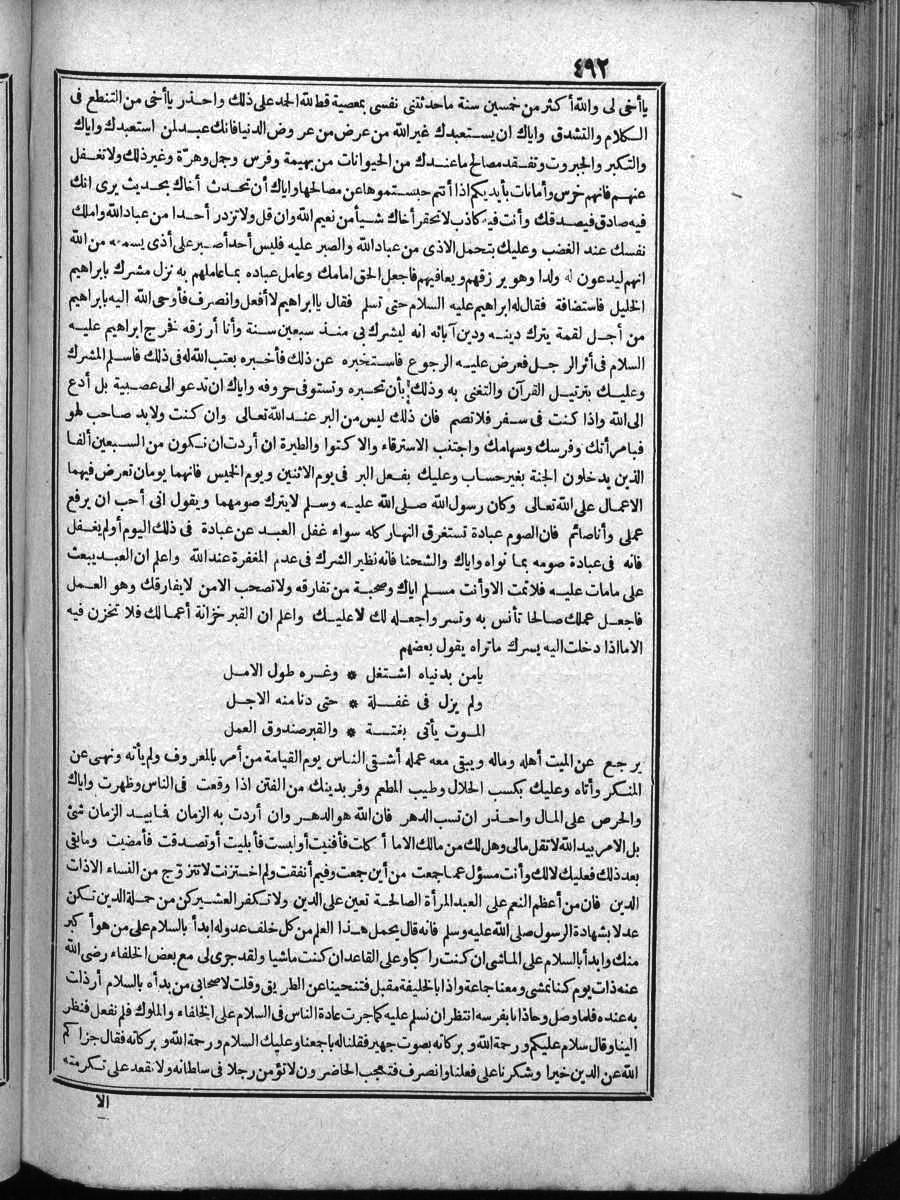 ٤٩٢
يا أخى لى والله أكثر من خمسين سنة ما حدثتنى نفسى بمعصية قط لله الحمد على ذلك واحذر يا أخى من التنطع فى
الكلام والتشدق واياك ان يستعبدك غير الله من عرض من عروض الدنيا فانك عبد لمن استعبدك واياك
والتكبر والجبروت وتفقد مصالح ما عندك من الحيوانات من بهيمة وفرس وجمل وهرّة وغير ذلك ولا تغفل
عنهم فانهم خرس وأمانات بأيديكم اذا أنتم حبستموها عن مصالحها واياك أن تحدث أخاك بحديث يرى انك
فيه صادق فيصدقك وأنت فيه كاذب لا تحقر أخاك شيأ من نعيم الله وان قل ولا تزدر أحدا من عباد الله واملك
نفسك عند الغضب وعليك بتحمل الاذى من عباد الله والصبر عليه فليس أحد أصبر على أذى يسمعه من الله
انهم ليدعون له ولدا وهو يرزقهم ويعافيهم فاجعل الحق امامك وعامل عباده بما عاملهم به نزل مشرك بابراهيم
الخليل فاستضافه فقال له ابراهيم عليه السلام حتى تسلم فقال يا ابراهيم لا أفعل وانصرف فأوحى الله اليه يا ابراهيم
من أجل لقمة يترك دينه ودين آبائه انه ليشرك بى منذ سبعين سنة وأنا أرزقه فخرج ابراهيم عليه
السلام فى أثر الرجل فعرض عليه الرجوع فاستخبره عن ذلك فأخبره بعتب الله له فى ذلك فاسلم المشرك
وعليك بترتيل القرآن والتغنى به وذلك بأن تحبره وتستوفى حروفه واياك ان تدعو الى عصبية بل أدع
الى الله واذا كنت فى سفر فلا تصم فان ذلك ليس من البر عند الله تعالى وان كنت ولا بد صاحب لهو
فبامرأتك وفرسك وسهامك واجتنب الاسترقاء والاكتوا والطيرة ان أردت ان تكون من السبعين ألفا
الذين يدخلون الجنة بغير حساب وعليك بفعل البر فى يوم الاثنين ويوم الخميس فانهما يومان تعرض فيهما
الاعمال على الله تعالى وكان رسول الله صلى الله عليه وسلم لا يترك صومهما ويقول انى أحب ان يرفع
عملى وأنا صائم فان الصوم عبادة تستغرق النهار كله سواء غفل العبد عن عبادة فى ذلك اليوم أو لم يغفل
فانه فى عبادة صومه بما نواه واياك والشحنا فانه نظير الشرك فى عدم المغفرة عند الله واعلم ان العبد يبعث
على مامات عليه فلا تمت الا وأنت مسلم اياك وصحبة من تفارقه ولا تصحب الا من لا يفارقك وهو العمل
فاجعل عملك صالحا تأنس به وتسر واجعله لك لا عليك واعلم ان القبر خزانة أعمالك فلا تخزن فيه
الا ما اذا دخلت اليه يسرك ما تراه يقول بعضهم
يا من بدنياه اشتغل * وغره طول الامل
ولم يزل فى غفلة * حتى دنا منه الاجل
الموت يأتى بغتة * والقبر صندوق العمل
يرجع عن الميت أهله وماله ويبقى معه عمله أشقى الناس يوم القيامة من أمر بالمعروف ولم يأته ونهى عن
المنكر وأتاه وعليك بكسب الحلال وطيب المطعم وفر بدينك من الفتن اذا وقعت فى الناس وظهرت واياك
والحرص على المال واحذر ان تسب الدهر فان الله هو الدهر وان أردت به الزمان فما بيد الزمان شئ
بل الامر بيد الله لا تقل مالى وهل لك من مالك الا ما أكلت فأفنيت أو لبست فأبليت أو تصدقت فأمضيت وما بقى
بعد ذلك فعليك لا لك وأنت مسؤل عما جمعت من أين جمعت وفيم أنفقت ولم اختزنت لا تتزوّج من النساء الا ذات
الدين فان من أعظم النعم على العبد المرأة الصالحة تعين على الدين ولا تكفر العشير كن من حملة الدين تكن
عدلا بشهادة الرسول صلى الله عليه وسلم فانه قال يحمل هذا العلم من كل خلف عدوله ابدأ بالسلام على من هو أكبر
منك وابدأ بالسلام على الماشى ان كنت راكبا وعلى القاعد ان كنت ماشيا ولقد جرى لى مع بعض الخلفاء رضى الله
عنه ذات يوم كنا نمشى ومعنا جماعة واذا بالخليفة مقبل فتنحينا عن الطريق وقلت لاصحابى من بدأه بالسلام أرذات
به عنده فلما وصل وحاذانا بفرسه انتظر ان نسلم عليه كما جرت عادة الناس فى السلام على الخلفاء والملوك فلم نفعل فنظر
الينا وقال سلام عليكم ورحمة الله وبركاته بصوت جهير فقلنا له باجمعنا وعليك السلام ورحمة الله وبركاته فقال جزاكم
الله عن الدين خيرا وشكرنا على فعلنا وانصرف فتعجب الحاضرون لا تؤمن رجلا فى سلطانه ولا تقعد على تكرمته
الا